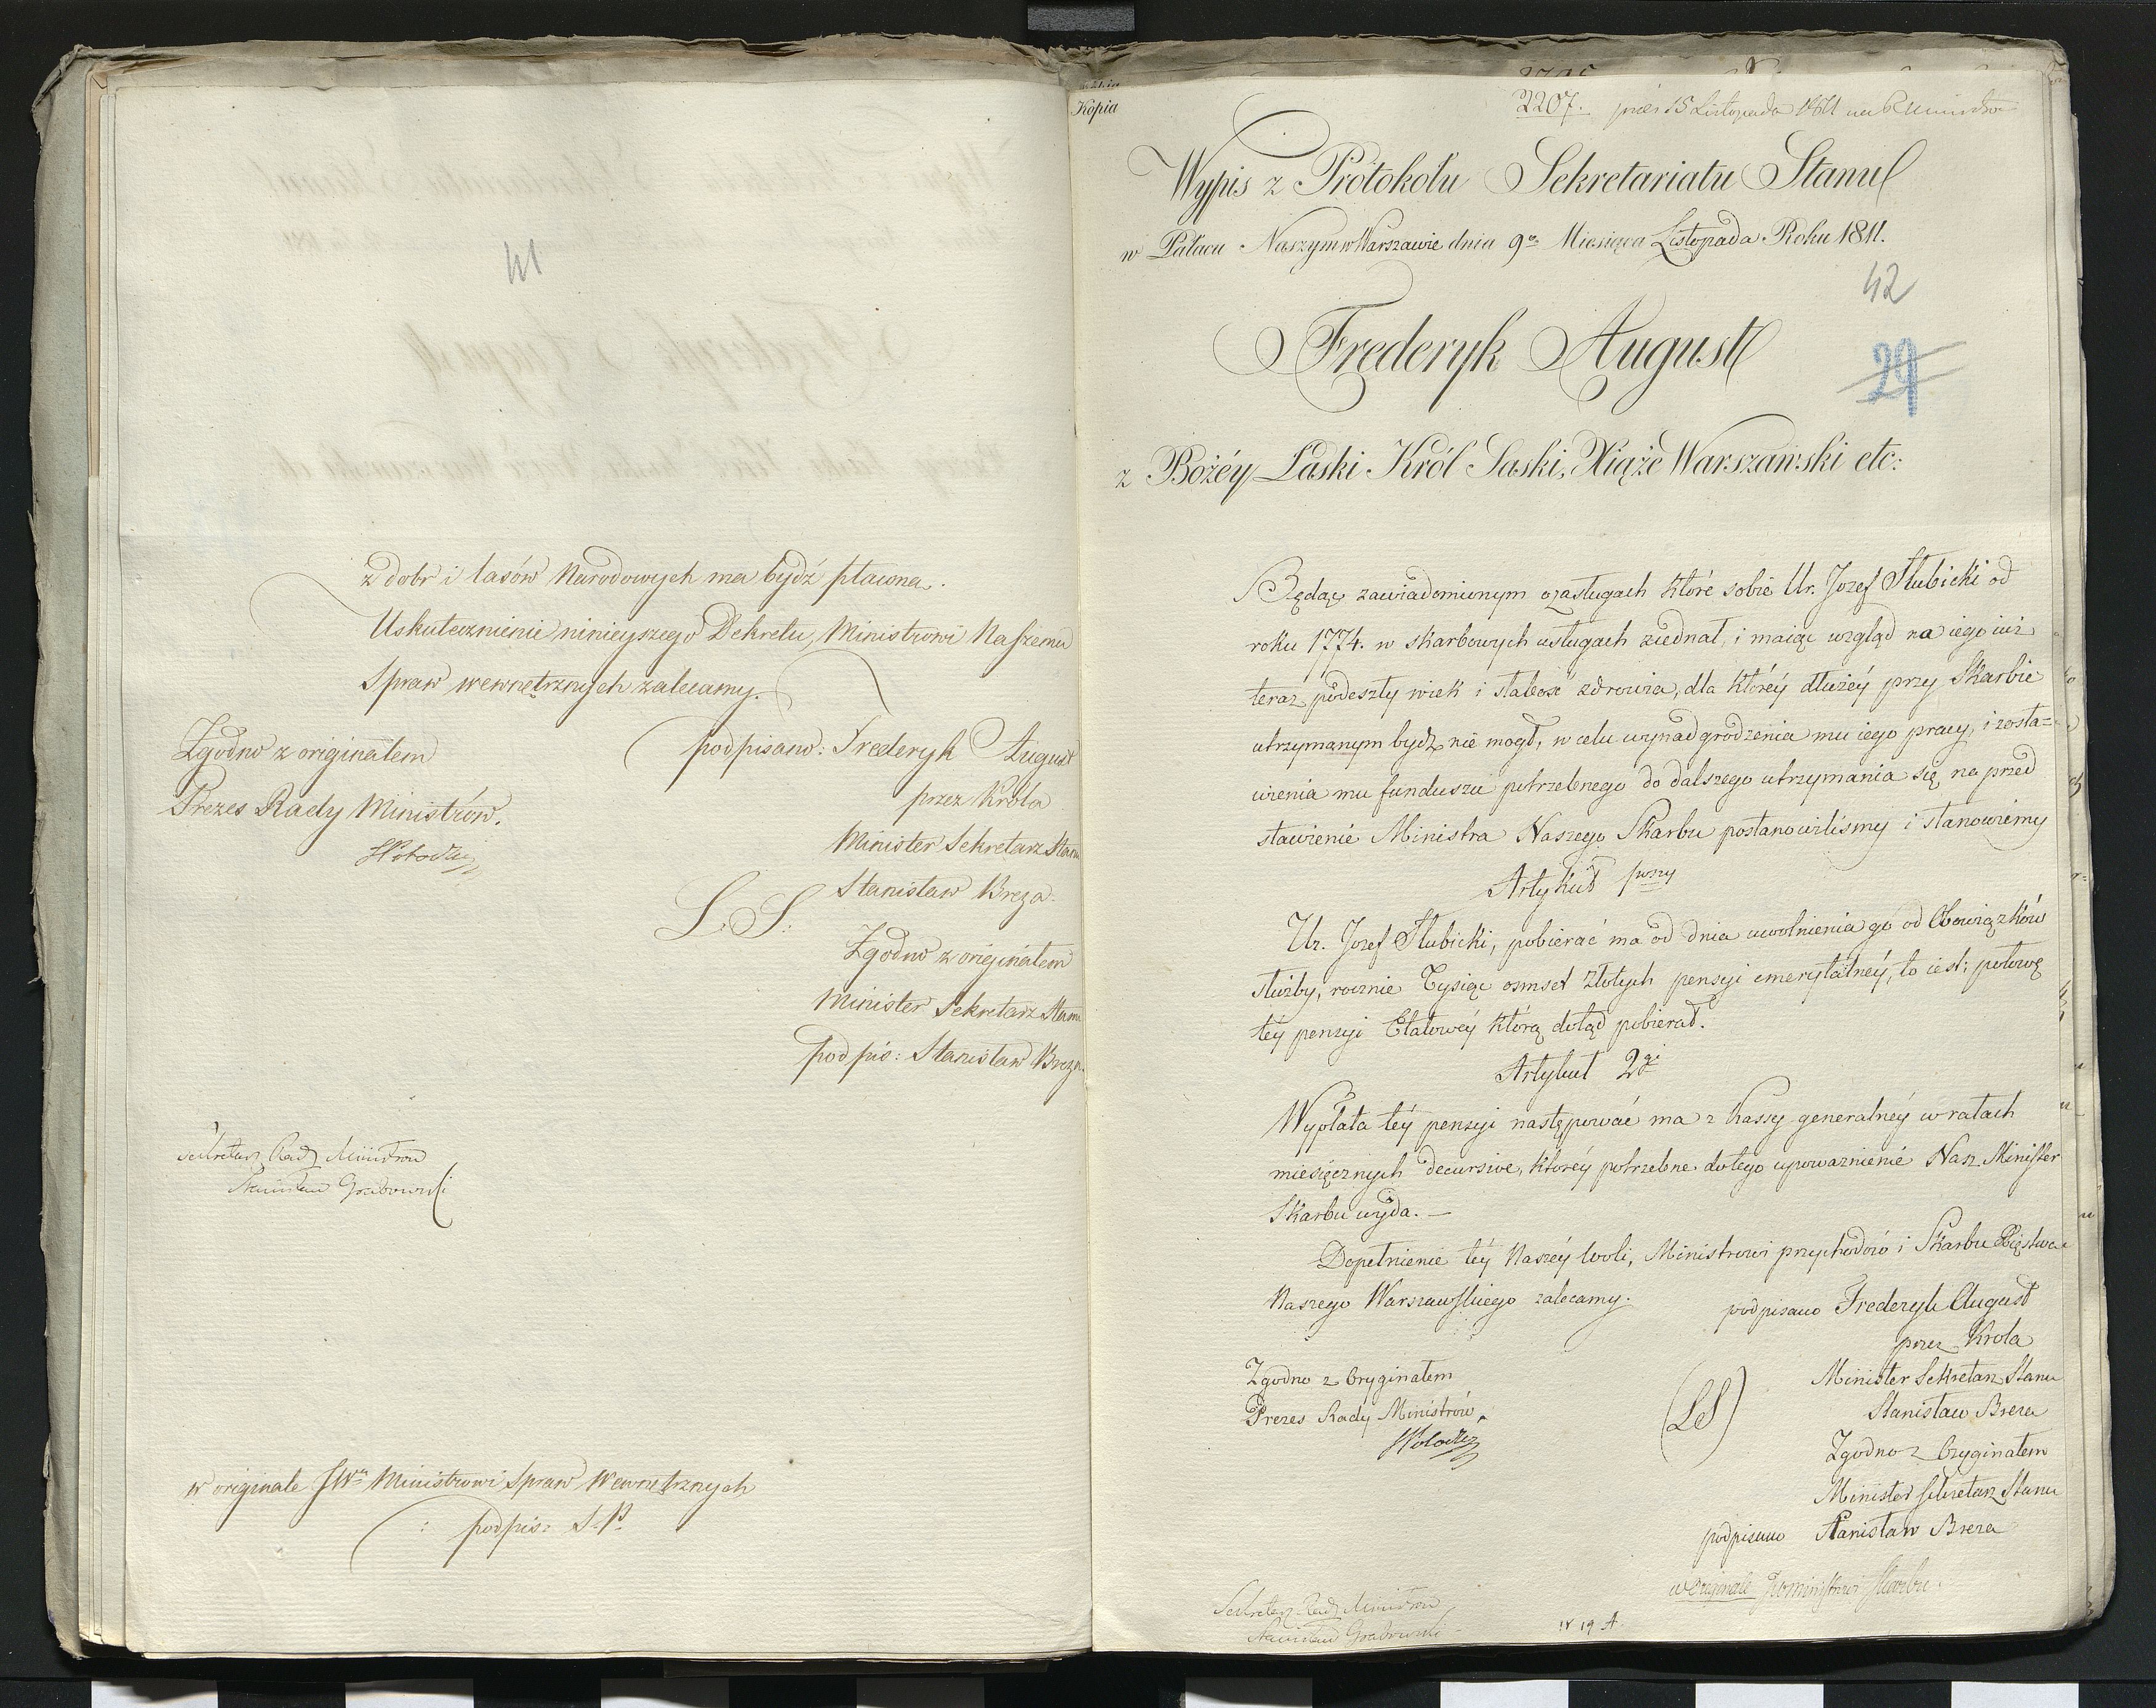 41
z dobr i lasów Narodowych ma bydź płacona.
Uskutecznienie ninieyszego Dekretu, Ministrowi Naszemu
Spraw wewnętrznych zalecamy.
podpisano: Frederyk August
przez Krola
Minister Sekretarz Stanu
Stanisław Breza
L. S.
Zgodno z originałem
Minister Sekretarz Stanu
podpis: Stanisław Breza
Zgodno z originałem
Prezes Rady Ministrów.
Sekretarz Rady Ministrow
Stanisław Grabowski
w originale JWu Ministrowi Spraw Wewnętrznych
podpis: S. B.
Kopia
2207. 15 Listopada 1811
Wypis z Protokołu Sekretariatu Stanu
w Pałacu Naszym w Warszawie dnia 9o Miesiąca Listopada Roku 1811.
42
Frederyk August
29
z Bożéy Łaski Król Saski, Xiąże Warszawski etc:
Będąc zawiadomionym o zasługach które sobie Ur. Jozef Słubicki od
roku 1774. w skarbowych usługach ziednał, i maiąc wzgląd na iego iuż
teraz podeszły wiek i słabość zdrowia, dla któréy dłużéy przy Skarbie
utrzymanym bydź nie mogł, w celu wynadgrodzenia mu iego pracy, i zosta=
wienia mu funduszu potrzebnego do dalszego utrzymania się, na przed
stawienie Ministra Naszego Skarbu postanowiliśmy i stanowiémy
Artykuł pwszy
Ur. Jozef Słubicki, pobierać ma od dnia uwolnienia go od Obowiązków
służby, rocznie Tysiąc osmset Złotych pensyi emerytalnéy, to iest: połowę
téy pensyi Etatowéy którą dotąd pobierał.
Artykuł 2gi
Wypłata téy pensyi następować ma z Kassy generalnéy w ratach
miesięcznych decursive, któréy potrzebne do tego upoważnienie Nasz Minister
Skarbu wyda. —
Dopełnienie téy Naszéy Woli, Ministrowi przychodów i Skarbu Xięstwa
Naszego Warszawskiego zalecamy.
podpisano Frederyk August
przez Krola
Minister Sekretarz Stanu
Stanisław Breza
(LS)
Zgodno z Oryginałem
Minister Sekretarz Stanu
podpisano Stanisław Breza
Zgodno z Oryginałem
Prezes Rady Ministrów
w Originale Ministrowi Skarbu.
Sekretarz Rady Ministrow
Stanisław Grabowski